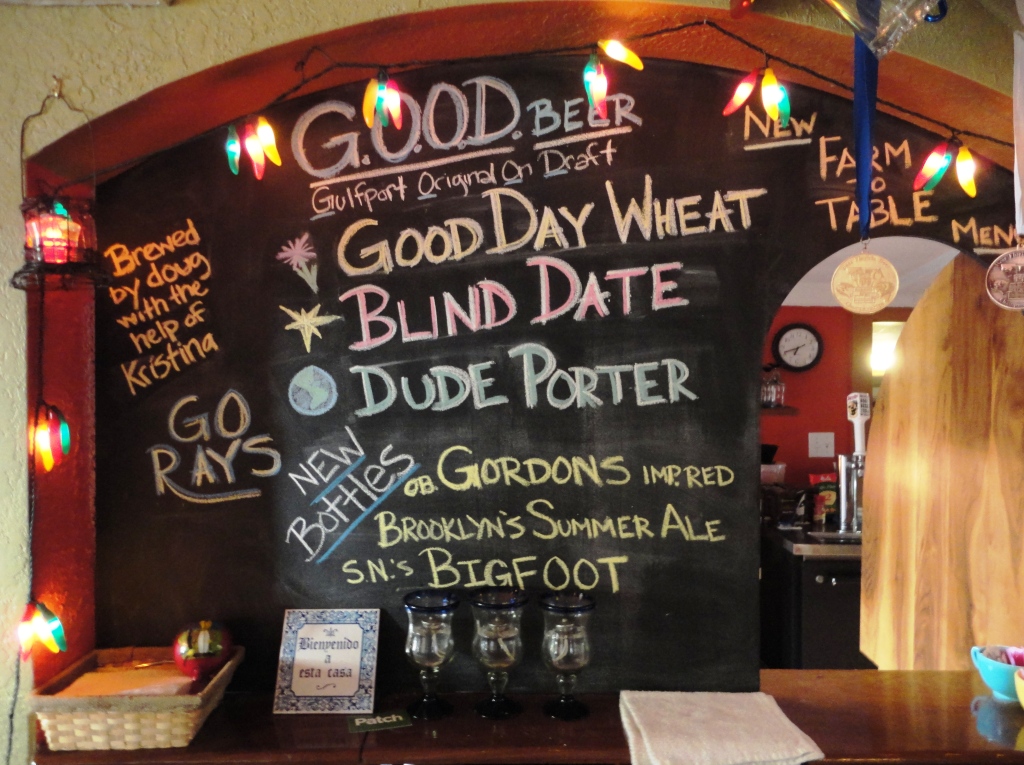 G.O.O.D. BEER
Gulfport Original On Draft
GOOD DAY WHEAT
BLIND DATE
DUDE PORTER
Brewed
by doug
with the
help of
Kristina
GO
RAYS
NEW
BOTTLES
O.B. GORDONS IMP. RED
BROOKLYN'S SUMMER ALE
S.N.'S BIGFOOT
NEW
FARM
TO
TABLE
Bienvenido
a
esta casa
Patch